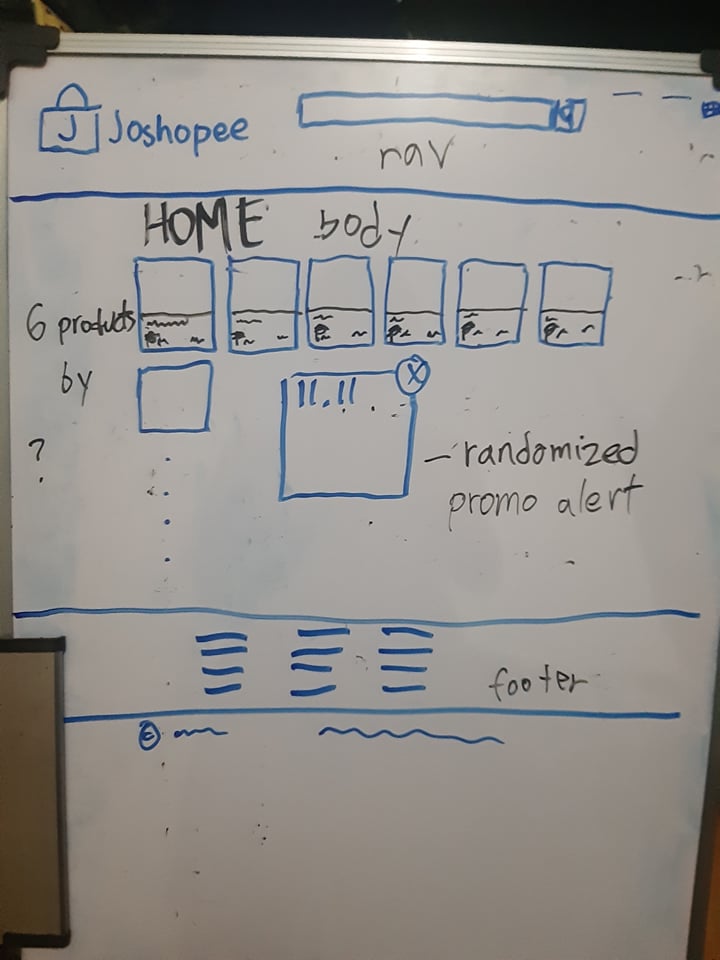 J Joshopee
nav
HOME body
6 products
by
?
11.11
X
randomized
promo alert
footer
©